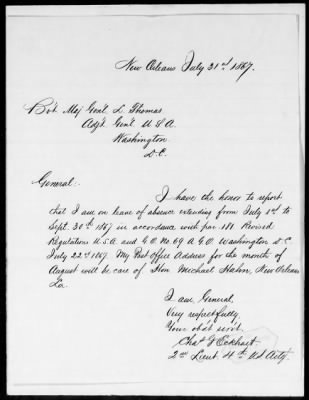 New Orleans July 31st 1867.
Bv't. Maj. Gen'l. L. Thomas
Adj't. Gen'l. U.S.A.
Washington
D.C.
General:
I have the honor to report
that I am on leave of absence extending from July 1st to
Sept. 30th 1867 in accordance with par. 181 Revised
Regulations U.S.A. and G.O. No. 69 A.G.O. Washington D.C.
July 22nd 1867. My Post Office Address for the month of
August will be care of Hon. Michael Hahn, New Orleans
La.
I am, General,
Very respectfully,
Your ob'dt serv't.
Chas. G. Eckhart
2nd Lieut. 4th US Art'y.